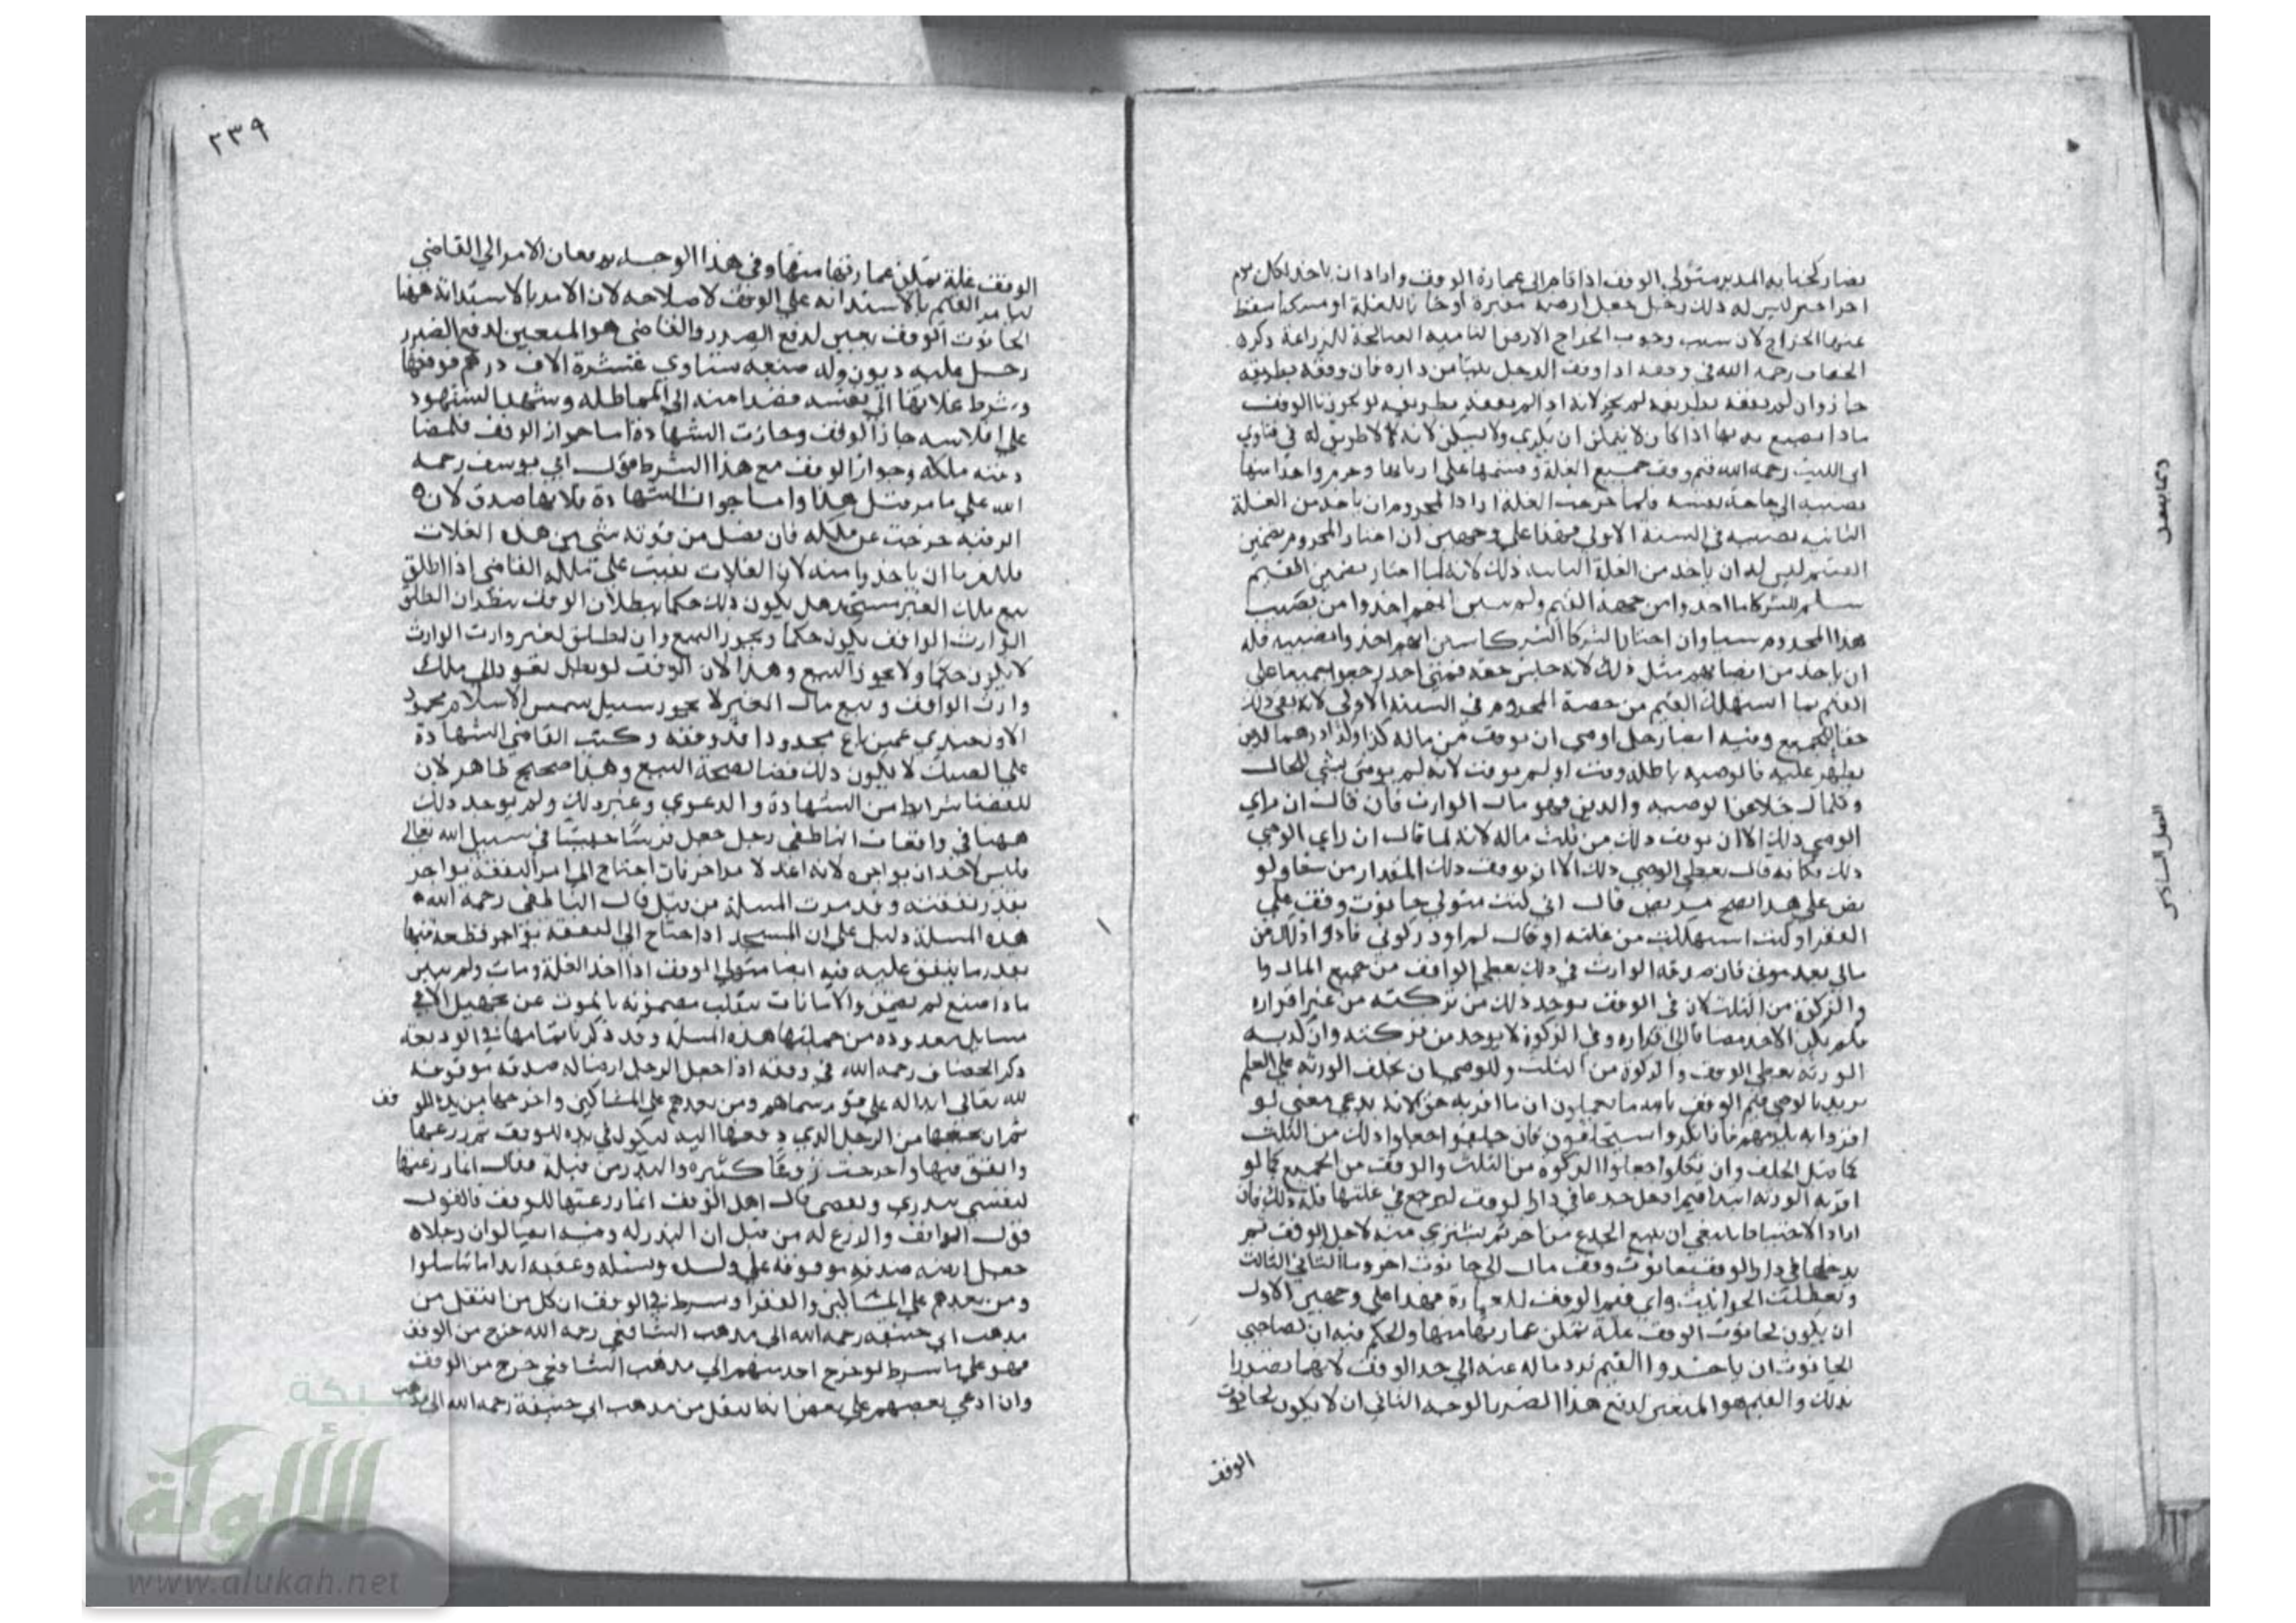 فصار كجناية المدبر متولي الوقف اذا قام الى عمارة الوقف واراد ان ياخذ لكل يوم
اجر اجير ليس له ذلك رجل جعل ارضه مقبرة او خانا للغلة او مسكنا سقط
عنها الخراج لان سبب وجوب الخراج الارض النامية الصالحة للزراعة ذكره
الخصاف رحمه الله في وقفه اذا وقف الرجل بيتا من داره فان وقفه بطريقه
جاز وان لم يقفه بطريقه لم يجز لانه اذا لم يقفه بطريقه لو يجوزنا الوقف
ماذا يصنع به بها اذا كان لا يمكن ان يكرى ولا يسكن لانه لا طريق له في فتاوي
ابي الليث رحمه الله قيم وقف جميع الغلة وقسمها على اربابها وحرم واحدا منها
نصيبه الى حاجة نفسه فلما خرجت الغلة اراد المحروم ان ياخذ من الغلة
الثانية نصيبه في السنة الاولى فهذا على وجهين ان اختار المحروم تضمين
القيم ليس له ان ياخذ من الغلة الثانية ذلك لانه لما اختار تضمين القيم
سلم للشركا ما اخذوا من جهة القيم ولم يتبين انهم اخذوا من نصيب
هذا المحروم شيا وان اختار الشركا الشركا تبين انهم اخذوا نصيبه فله
ان ياخذ من انصبائهم مثل ذلك لانه جنس حقه فمتى اخذ رجعوا جميعا على
القيم بما استهلك القيم من حصة المحروم في السنة الاولى لانه بقي ذلك
حقا للجميع وفيه ايضا رجل اوصى ان يوقف من ماله كذا وكذا درهما لدين
يظهر عليه فالوصية باطلة وقت او لم يوقت لانه لم يوص بشي للحال
وكلما خلا عن الوصية والدين فهو مال الوارث فان قال ان راي
الوصي ذلك الا ان يوقف ذلك من ثلث ماله لانه لما قال ان راي الوصي
ذلك فكانه قال يعطي الوصي ذلك الا ان يوقف ذلك المقدار من شا ولو
نص على هذا يصح مريض قال اني كنت متولي حانوت وقف على
الفقرا وكنت استهلكت من غلته او قال لم اود زكوتي فادوا ذلك من
مالي بعد موتي فان صدقه الوارث في ذلك يعطي الواقف من جميع المال وا
والزكوة من الثلث لان في الوقف يوجد ذلك من تركته من غير اقراره
فلم يكن الاخذ مضافا الى اقراره وفي الزكوة لا يوجد من تركته وان كذبه
الورثة يعطي الوقف والزكوة من الثلث وللوصي ان يحلف الورثة على العلم
يريد بالوصي قيم الوقف بالله ما تعلمون ان ما اقر به حق لانه يدعي معنى لو
اقروا به يلزمهم فاذا انكروا يستحلفون فان حلفوا جعلوا ذلك من الثلث
كما قبل الحلف وان نكلوا جعلوا الزكوة من الثلث والوقف من الجميع كما لو
اقر به الورثة ابتدا قيم ادخل جذعا في دار الوقف ليرجع في غلتها فله ذلك فان
اراد الاحتياط ينبغي ان يبيع الجذع من اخر ثم يشتري منه لاجل الوقف ثم
يدخلها في دار الوقف حانوت وقف مال الى حانوت اخر ومال الثاني الثالث
وتعطلت الحوانيت وابى قيم الوقف للعمارة فهذا على وجهين الاول
ان يكون لحانوت الوقف غلة تمكن عمارتها منها والحكم فيه ان لصاحبي
الحانوت ان ياخذوا القيم برد ماله عنه الى حد الوقف لانهما تضررا
بذلك والقيم هو المتعين لدفع هذا الضرر الوجه الثاني ان لا يكون لحانوت
الوقف
٢٣٩
الوقف غلة تمكن عمارتها منها وفي هذا الوجه يدفعان الامر الى القاضي
ليامر القيم بالاستدانة على الوقف لاصلاحه لان الامر بالاستدانة ههنا
الحانوت الوقف يعين لدفع الضرر والقاضي هو المتعين لدفع الضرر
رجل عليه ديون وله ضيعة تساوي عشرة الاف درهم فوقفها
وشرط غلاتها الى نفسه قصدا منه الى المماطلة وشهد الشهود
على افلاسه جاز الوقف وجازت الشهادة اما جواز الوقف فلمصا
دفته ملكه وجواز الوقف مع هذا الشرط قول ابي يوسف رحمه
الله على ما مر قبل هذا واما جواز الشهادة فلانها صدق لان
الرقبة خرجت عن ملكه فان فضل من قوته شي من هذه الغلات
فللغرما ان ياخذوا منه لان الغلات بقيت على ملكه القاضي اذا اطلق
بيع ملك الغير مسجد هل يكون ذلك حكما ببطلان الوقف ينظر ان اطلق
الوارث الواقف يكون حكما ويجوز البيع وان اطلق لغير وارث الوارث
لا يكون حكما ولا يجوز البيع وهذا لان الوقف لو بطل يعود الى ملك
وارث الواقف وبيع مال الغير لا يجوز سئل شمس الاسلام محمود
الاوزجندي عمن باع محدودا قد وقفه وكتب القاضي الشهادة
على الصك لا يكون ذلك قضا بصحة البيع وهذا صحيح ظاهر لان
للقضا شرايط من الشهادة والدعوى وغير ذلك ولم يوجد ذلك
ههنا في واقعات الناطفي رجل جعل فرسا حبيسا في سبيل الله تعالى
فليس لاحد ان يواجره لانه اعد لا مر اخر فان احتاج الى امر النفقة يواجر
بقدر نفقته وقد مرت المسئلة من قبل قال الناطفي رحمه الله
هذه المسئلة دليل على ان المسجد اذا احتاج الى النفقة يؤاجر قطعة منها
بقدر ما ينفق عليه فيه ايضا متولي الوقف اذا اخذ الغلة ومات ولم يبين
ماذا صنع لم يضمن والامانات تنقلب مضمونة بالموت عن تجهيل الا في
مسايل معدودة من جملتها هذه المسئلة وقد ذكرنا تمامها في الوديعة
ذكر الخصاف رحمه الله في وقفه اذا جعل الرجل ارضا له صدقة موقوفة
لله تعالى ابدا له على قوم سماهم ومن بعدهم على المساكين واخرجها من يده للوقف
ثم ان قبضها من الرجل الذي دفعها اليه ليكون في يده للوقف ثم زرعها
وانفق فيها واخرجت زرعا كثيرا والبذر من قبله فقال انما زرعتها
لنفسي ببذري ونفقتي قال اهل الوقف انما زرعتها للوقف فالقول
قول الواقف والزرع له من قبل ان البذر له وفيه ايضا لو ان رجلا
جعل ارضه صدقة موقوفة على ولده ونسله وعقبه ابدا ما تناسلوا
ومن بعدهم على المساكين والفقرا وشرط في الوقف ان كل من انتقل من
مذهب ابي حنيفة رحمه الله الى مذهب الشافعي رحمه الله خرج من الوقف
فهو على ما شرط لو خرج احد منهم الى مذهب الشافعي خرج من الوقف
وان ادعى بعضهم على بعض انه انتقل من مذهب ابي حنيفة رحمه الله الى مذهب
شبكة
الألوكة
www.alukah.net